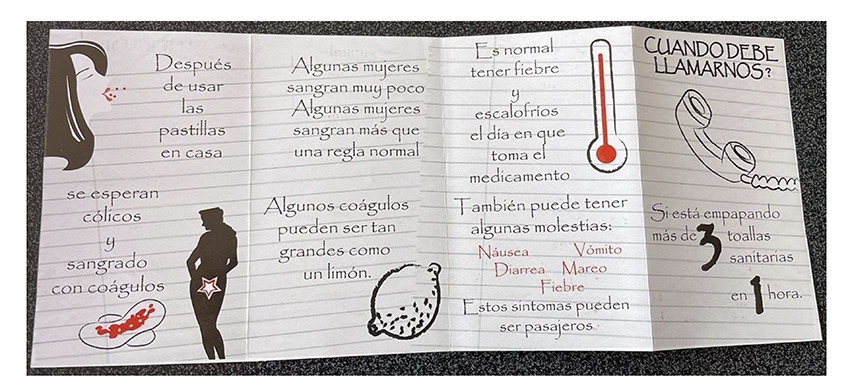 Después
de usar
las
pastillas
en casa
se esperan
cólicos
y
sangrado
con coágulos
Algunas mujeres
sangran muy poco
Algunas mujeres
sangran más que
una regla normal
Algunos coágulos
pueden ser tan
grandes como
un limón.
Es normal
tener fiebre
y
escalofríos
el día en que
toma el
medicamento
También puede tener
algunas molestias:
Náusea Vómito
Diarrea Mareo
Fiebre
Estos sintomas pueden
ser pasajeros
CUANDO DEBE
LLAMARNOS?
Si está empapando
más de 3 toallas
sanitarias
en 1 hora.